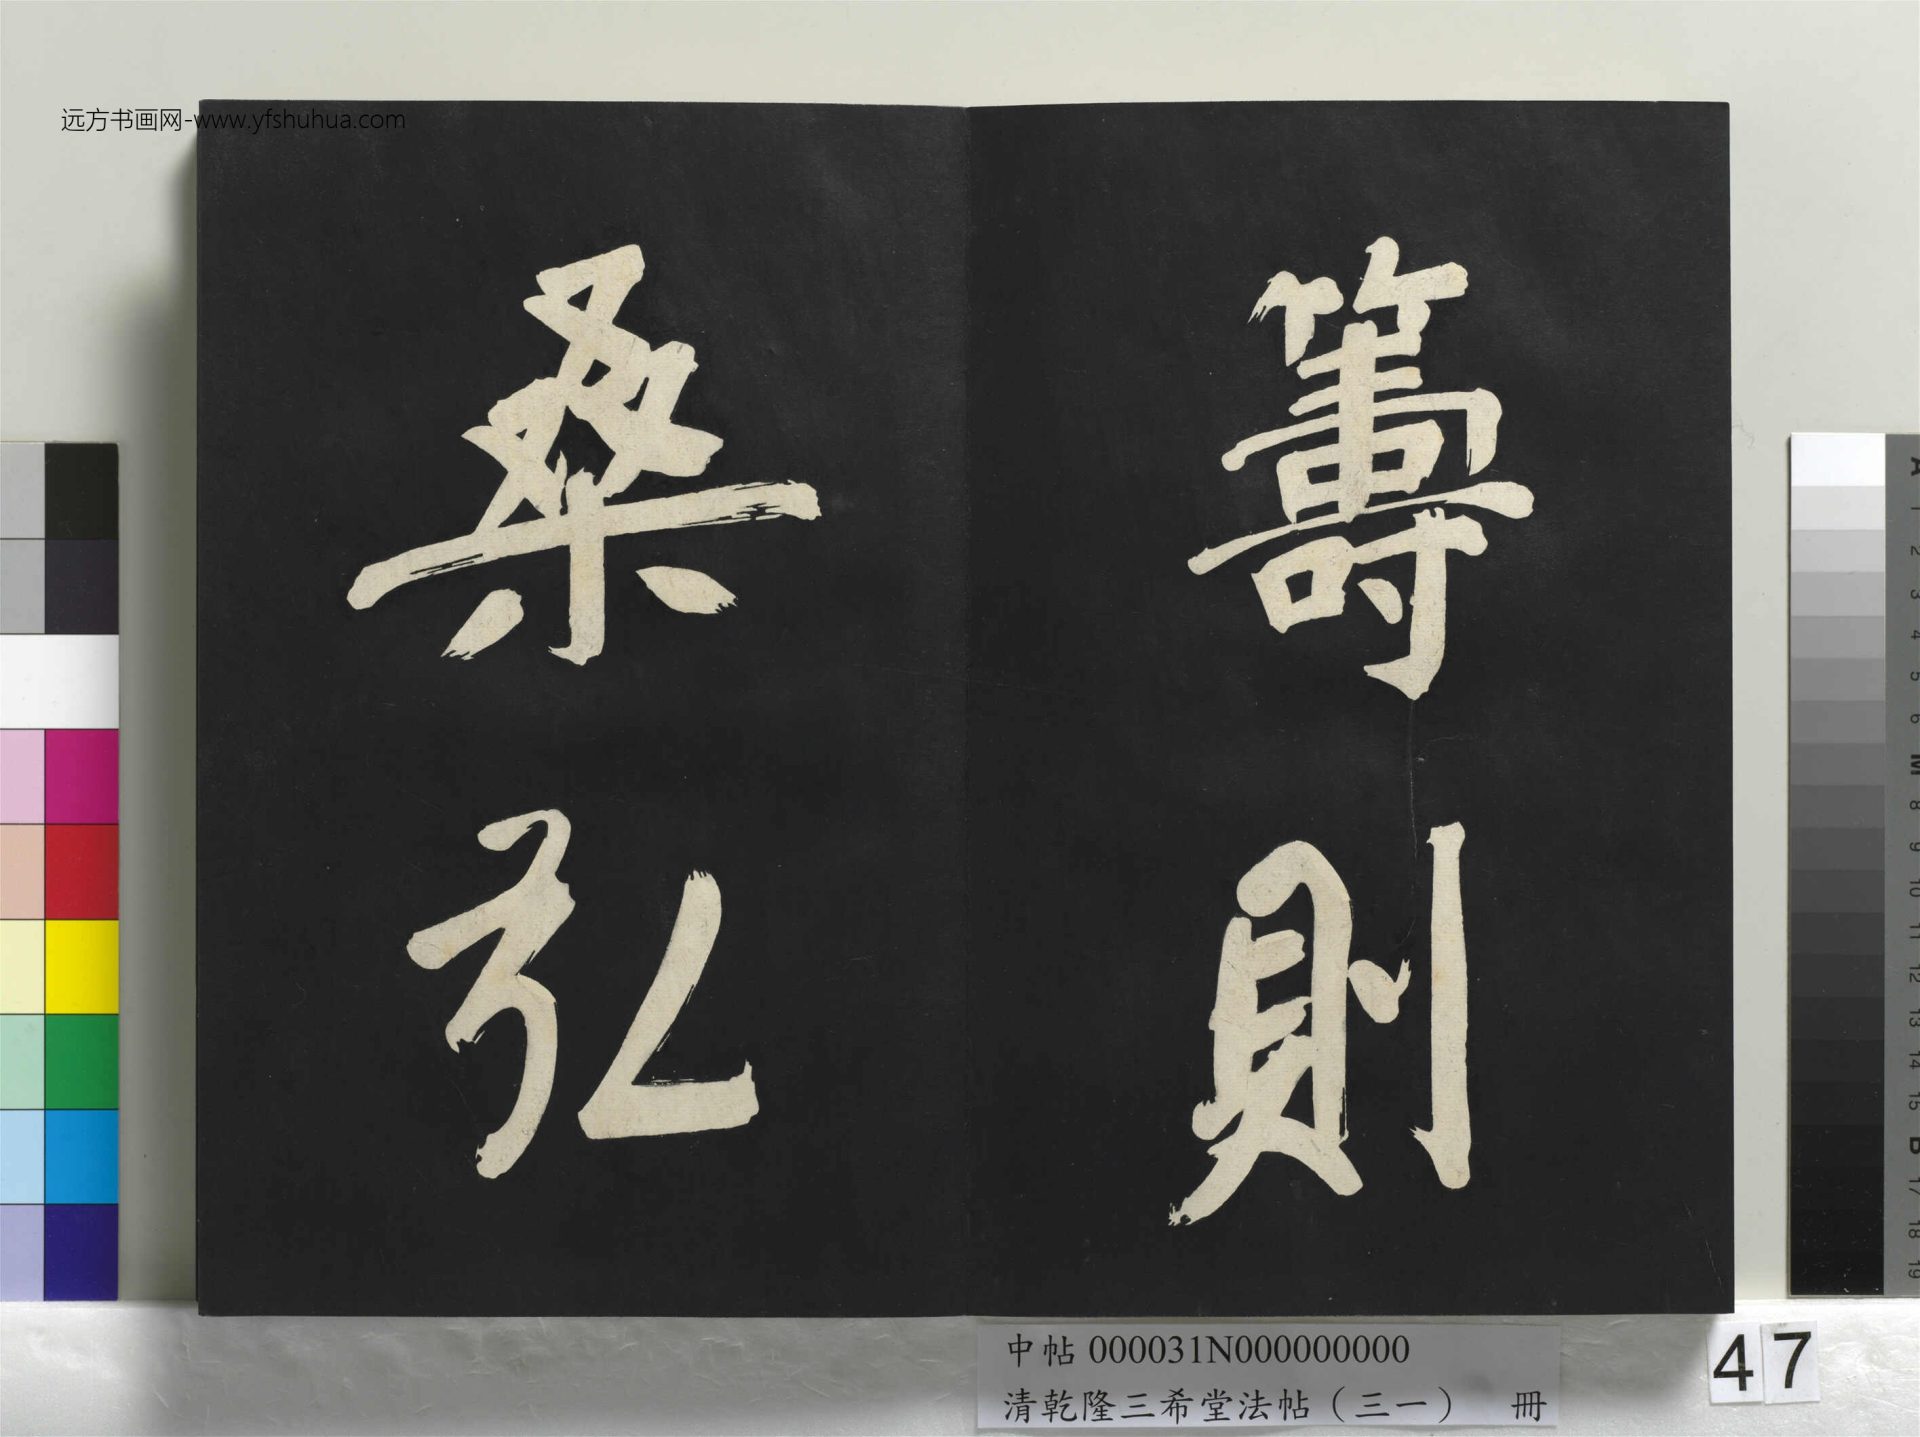 远方书画网-www.yfshuhua.com
籌則
桑弘
中帖 000031N000000000
清乾隆三希堂法帖（三一） 冊
47
A
1
2
3
4
5
6
M
8
9
10
11
12
13
14
15
B
17
18
19